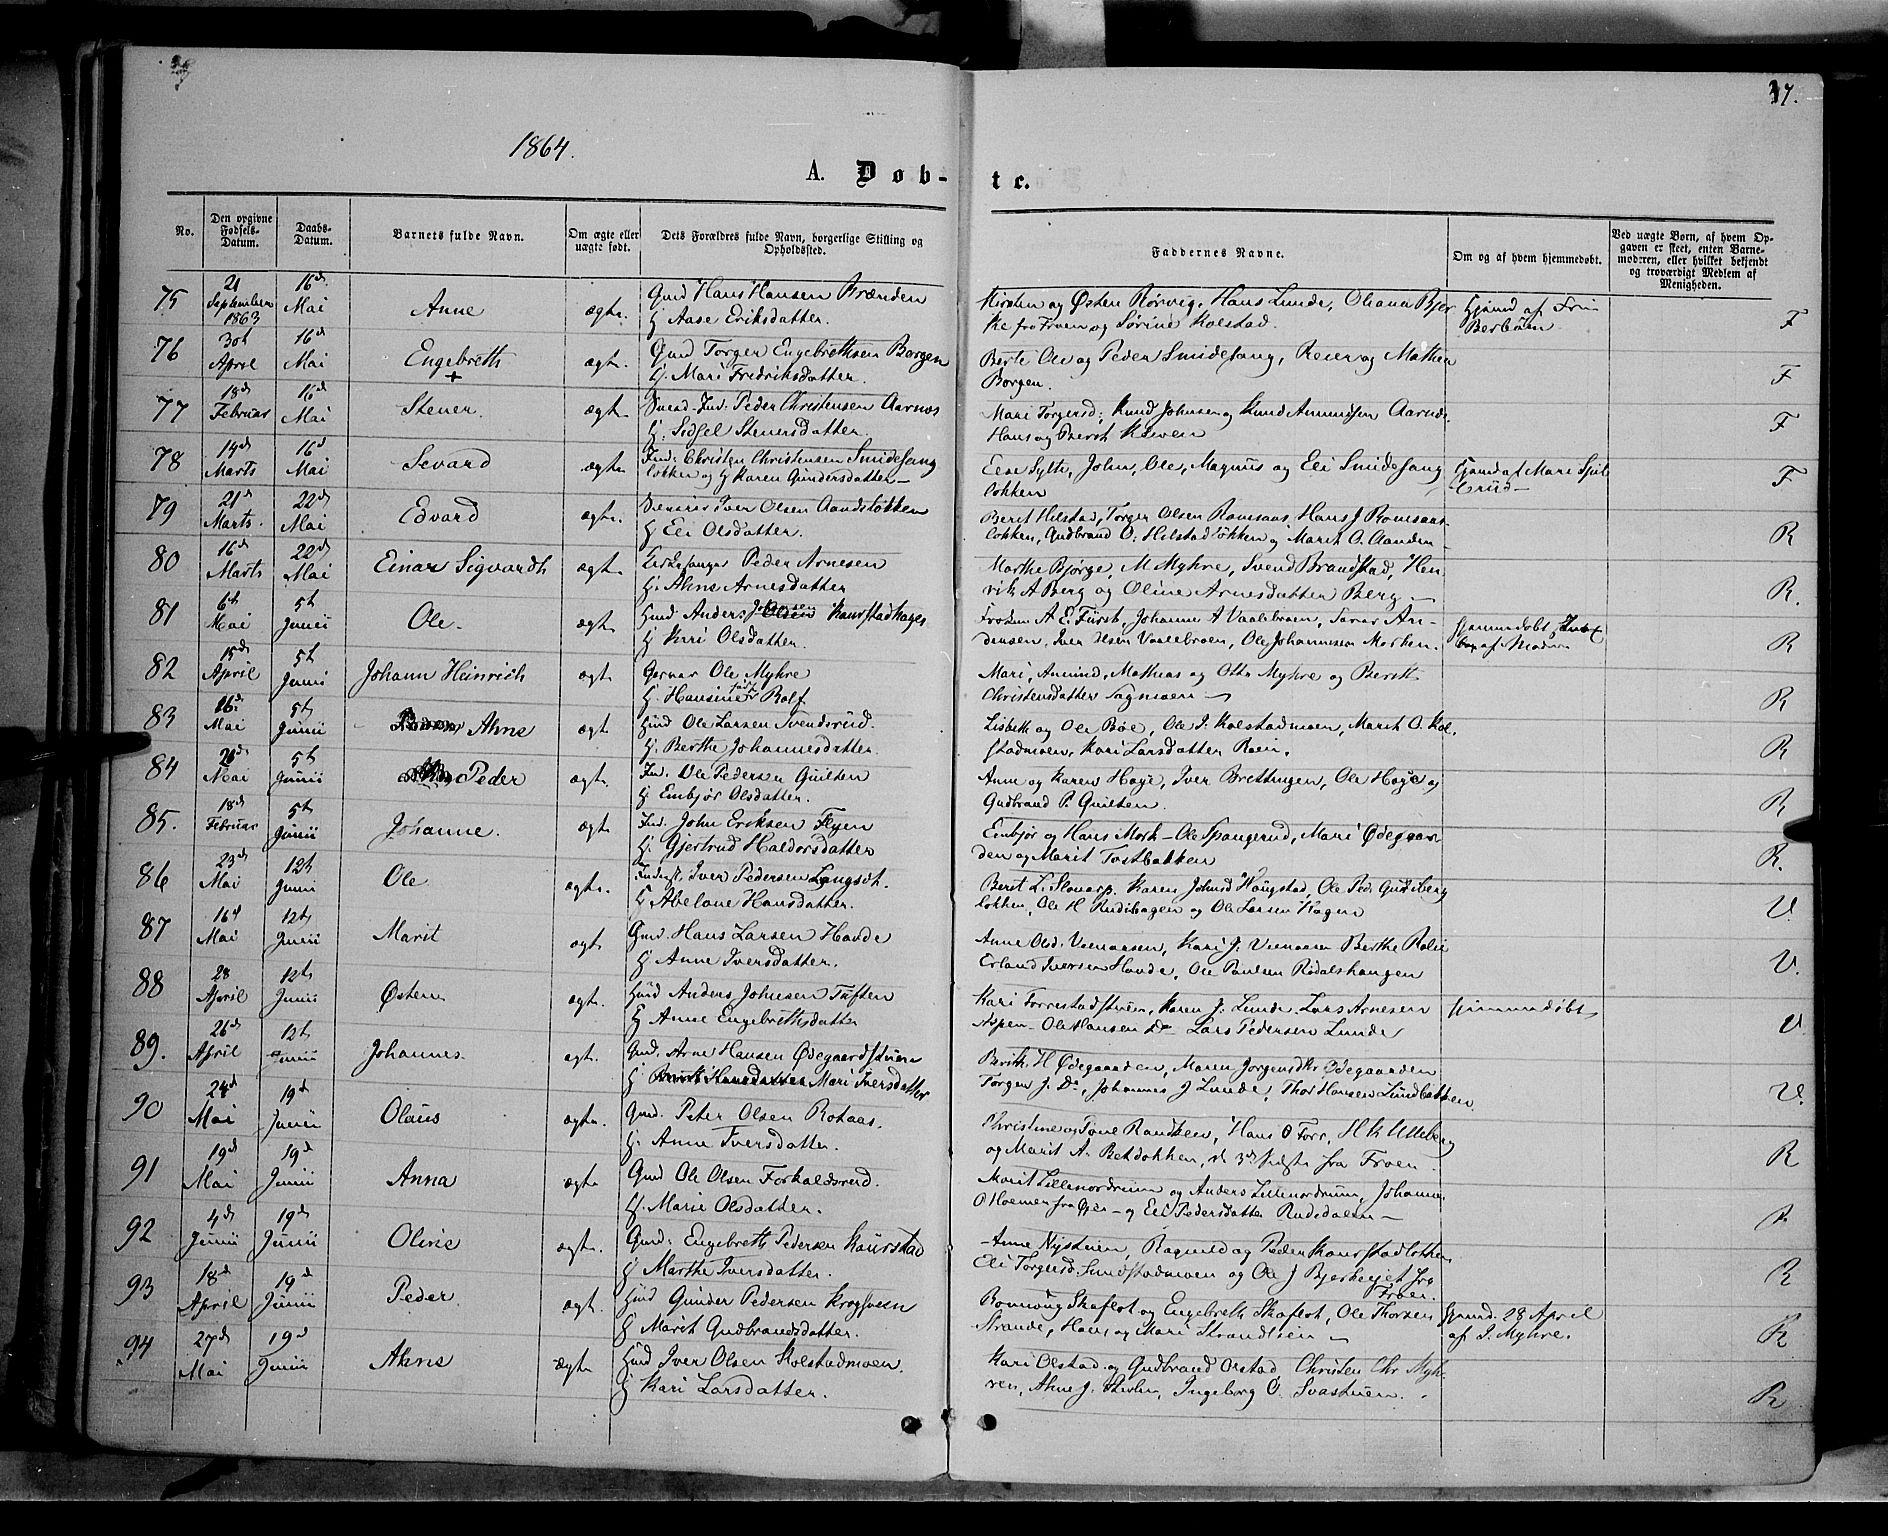 17.
1864.
A. Døb-
te.
No.
Den opgivne Fødsels-Datum.
Daabs-Datum.
Barnets fulde Navn.
Om ægte eller uægte født.
Dets Forældres fulde Navn, borgerlige Stilling og Opholdssted.
Faddernes Navne.
Om og af hvem hjemmedøbt.
Ved uægte Børn, af hvem Opgaven er skeet, enten Barnemoderen, eller hvilket bekjendt og troværdigt Medlem af Menigheden.
75 21 September 1863 16de Mai Anne ægte. Gmd Hans Hansen Brænden
Hj Aase Eriksdatter.
Kirsten og Østen Rørvig, Hans Lunde, Oliana Bjer
ke fra Froen og Sørine Kolstad.
Hjemd af
F
76 30t April 16d Mai Engebreth ægte. Gmd Torger Engebrethsen Borgen
+
Hj. Mari Fredriksdatter.
Berte Ole og Peder Smidesang, Reier og Mathea
Borgen.
F
77 18d Februar 16d Mai Stener. ægte Ind. Peder Christensen Aarnes
Hj. Sidsel Stenersdatter.
Mari Torgersd; Knud Johnsen og Knud Amundsen Aarnes
Hans og Berit
F
78 14de Marts 16d Mai Sevard ægte Ind: Christen Christensen Smidesang
løkken og Hj Karen Gundersdatter
Else Sylte, John, Ole, Magnus og Eli Smidesang
løkken
Hjemd af Mari
F
79 21d Marts. 22de Mai Edvard ægte. Iver Olsen Aandsløkken
Hj Eli Olsdatter.
Beret Hilstad, Torger Olsen Ramsaas, Hans J Romsaas
løkken, Gudbrand O. Hilstadløkken og Marit O. Aanden
R
80 16de Marts 22de Mai Einar Sigvardt ægt. Kirkesanger Peder Arnesen
Hj. Ahne Arnesdatter
Marthe Bjørge, M Myhre, Svend Brandstad, Hen
rik A Berg og Oline Arnesdatter Berg
R.
81 6t Mai 5t Junii Ole. ægt. Hmd. Anders Johansen
Hj Kari Olsdatter.
Frøken A E. Fürst, Johanne A Vaalebroen, An-
densen, Iver Olsen Vaalebroen, Ole Johannessen Morken.
hjemmedøbt
af Moderen
R
82 15de April 5t Junii Johann Heinrich ægt Garver Ole Myhre
Hj. Hansine født Rolf
Mari, Amund, Mathias og Otto Myhre og Berith
Christensdatter Sagmoen
R
83 16. Mai 5t Junii Ahne ægt Hmd Ole Larsen Svendsrud.
Hj. Berthe Johannesdatter.
Lisbeth og Ole Bøe, Ole J: Kolstadmoen, Marit O. Kol
stadmoen, Kari Larsdatter Roen.
R
84 Mai 5t Junii Peder ægte. Ind. Ole Pedersen Quilten
Hj. Embjør Olsdatter.
Anne og Karen Hage, Iver Brettingen, Ole Hage og
Gudbrand P. Quilten.
R
85. 18d Februar 5t Junii Johanne. ægt Ind. John Eriksen Flyen
Hj. Gjertrud Haldorsdatter
Embjør og Hans Mork - Ole Spangrud, Mari Ødegaar
den og Marit Tostbakken
R.
86 23de Mai 12t Junii Ole ægte. Iver Pedersen
Hj Abelone Hansdatter.
Beret L. Karen Haugstad, Ole Ped: Gudsberg
løkken, Ole H Rudihagen og Ole Larsen Hagen
V.
87 16d Mai 12t Junii Marit ægt. Gmd. Hans Larsen Hovde
Hj Anne Iversdatter.
Anne Olsd. Kari J. Berthe
Erland Iversen Hovde, Ole Paulsen Rødalshaugen
V.
88 28 April 12t Junii Østen ægte. Hmd Anders Johnsen Tuften
Hj Anne Engebrethsdatter
Kari Forrestadstuen, Karen J. Lunde, Lars Arnesen
Aspen - Ole Hansen Do Lars Pedersen Lunde
hjemmedøbt
V
89. 26de April 12t Junii Johannes. ægt. Gmd. Arne Hansen Ødegaardstuen
Hj Mari Iversdatter
Berith H Ødegaarden, Maren Jorgensdtr Ødegaarden
Torger J. Do, Johannes J Lunde, Thor Hansen Lundbakken
V.
90 24d Mai 19d Junii Olaus ægte. Gmd. Peter Olsen Rotaas.
Hj. Anne Iversdatter.
Christine og Tone Randken, Hans O Forr, H K Ulleberg
og Marit A. de 3de sidste fra Froen.
R
91 19de Mai 19d Junii Anna ægte Gmd Ole Olsen Forkaldsrud.
Hj. Marie Olsdatter.
Marit Lillenordrum og Anders Lillenordrum, Johanne
fra Øjer - og Eli Pedersdatter Rudsdalen
R
92 4de Junii 19d Junii Oline ægte. Gmd. Engebreth Pedersen Kaurstad
Hj Marthe Iversdatter.
Anne Nystuen, Ragnild og Peder Kaurstadløkken
Eli Torgersd. Sundstadmoen og Ole J Bjerkejet fra
Froen.
R
93 18d April 19d Junii Peder ægt. Hmd Gunder Pedersen Krogsveen
Hj Marit Gudbrandsdatter.
Romoug Skaflot og Engebreth Skaflot, Ole Thorsen
Strande, Hans og Mari Strandstuen
Hjemd. 28 April
af I. Myhre.
R
94 27d Mai 19d Junii Ahne ægte Hmd Iver Olsen Kolstadmoen.
Hj Kari Larsdatter.
Kari Olstad og Gudbrand Olstad Christen Chr Myh-
ren, Ahne J. Ingeborg O. Svastuen.
R